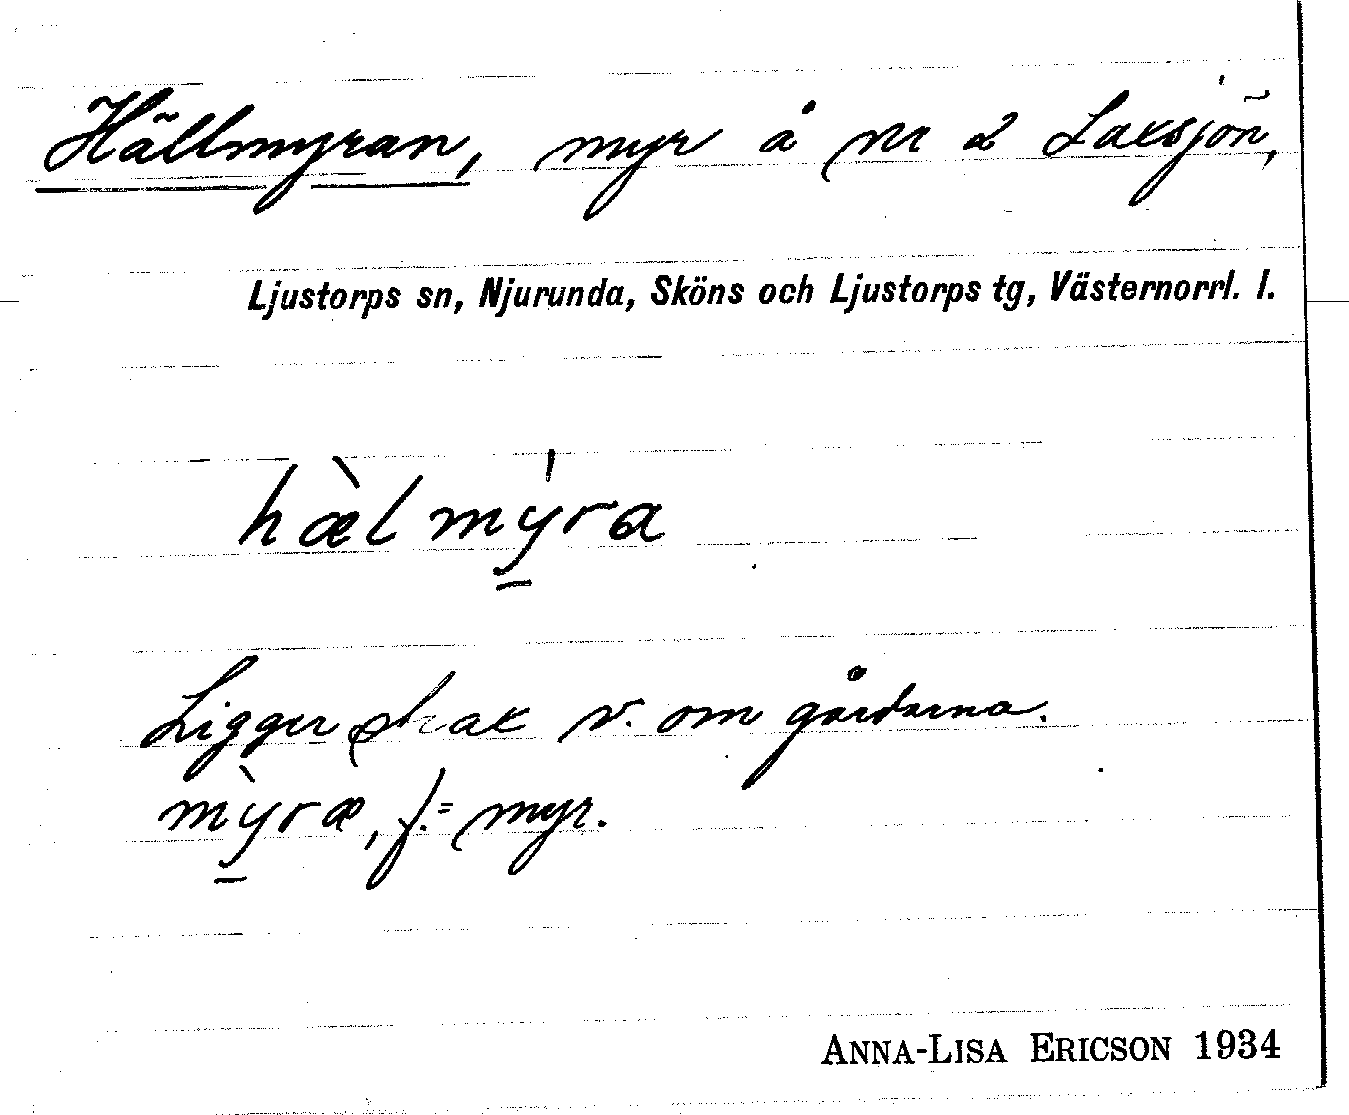 Hällmyran, myr å nr 2 Laxsjön,
Ljustorps sn, Njurunda, Sköns och Ljustorps tg, Västernorrl. l.
hæ̀lmy̠̍ra
Ligger strax v. om gårdarna.
mỳ̠ræ, f. = myr.
ANNA-LISA ERICSON 1934